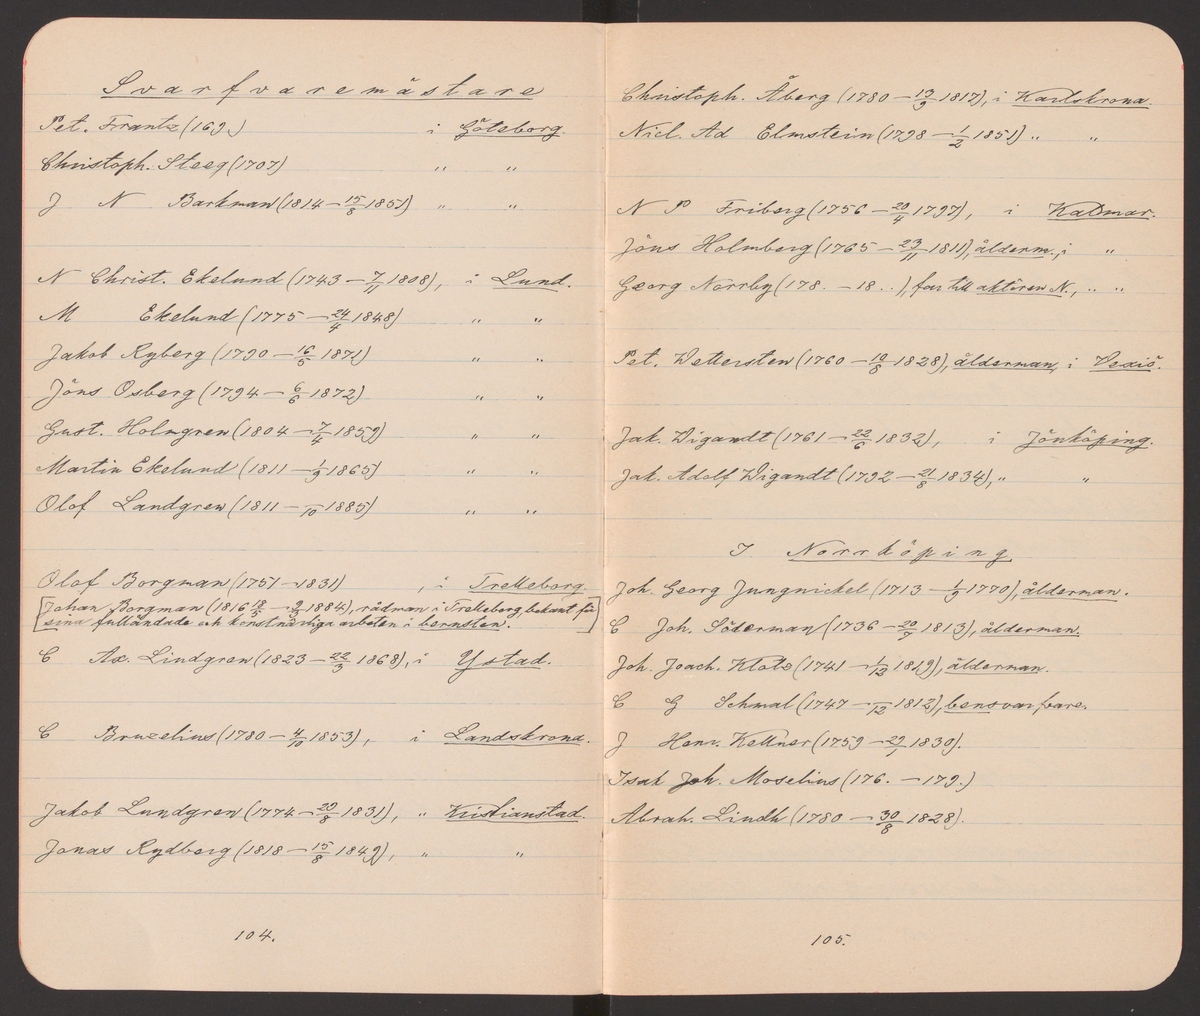 Svarfvaremästare
Pet. Frantz (169.) i Göteborg.
Christoph. Steeg (1707) " "
J N Barkman (1814 — 15/8 1851) " "
N Christ. Ekelund (1743 — 7/11 1808), i Lund.
M Ekelund (1775 — 24/4 1848) " "
Jakob Ryberg (1790 — 16/5 1871) " "
Jöns Osberg (1794 — 6/6 1872) " "
Gust. Holmgren (1804 — 7/4 1859) " "
Martin Ekelund (1811 — 1/9 1865) " "
Olof Landgren (1811 — /10 1885) " "
Olof Borgman (1751 — 1831) , i Trelleborg.
[Johan Borgman (1816 18/5 — 9/3 1884), rådman i Trelleborg, bekant för
sina fulländade och konstnärliga arbeten i bernsten.]
C Ax. Lindgren (1823 — 22/3 1868), i Ystad.
C Bruzelius (1780 — 4/10 1853), i Landskrona.
Jakob Lundgren (1774 — 20/8 1831), " Kristianstad.
Jonas Rydberg (1818 — 15/8 1849), " "
104.
Christoph. Åberg (1780 — 19/9 1817), i Karlskrona.
Nicl. Ad Elmstein (1798 — 1/2 1851) " "
N P Friberg (1756 — 20/4 1797), i Kalmar.
Jöns Holmberg (1765 — 23/11 1811), ålderm., i "
Georg Norrby (178. — 18..), far till aktören N., " "
Pet. Wettersten (1760 — 10/8 1828), ålderman, i Vexiö.
Jak. Wigandt (1761 — 22/6 1832), i Jönköping.
Jak. Adolf Wigandt (1792 — 21/8 1834), " "
I Norrköping
Joh. Georg Jungnickel (1713 — 1/9 1770), ålderman.
C Joh. Söderman (1736 — 20/9 1813), ålderman.
Joh. Joach. Klotz (1741 — 1/12 1819), ålderman.
C G Schmal (1747 — /12 1812), bensvarfvare.
J Henr. Kellner (1759 — 29/1 1830).
Isak Joh. Moselius (176. — 179.)
Abrah. Lindh (1780 — 30/8 1828).
105.